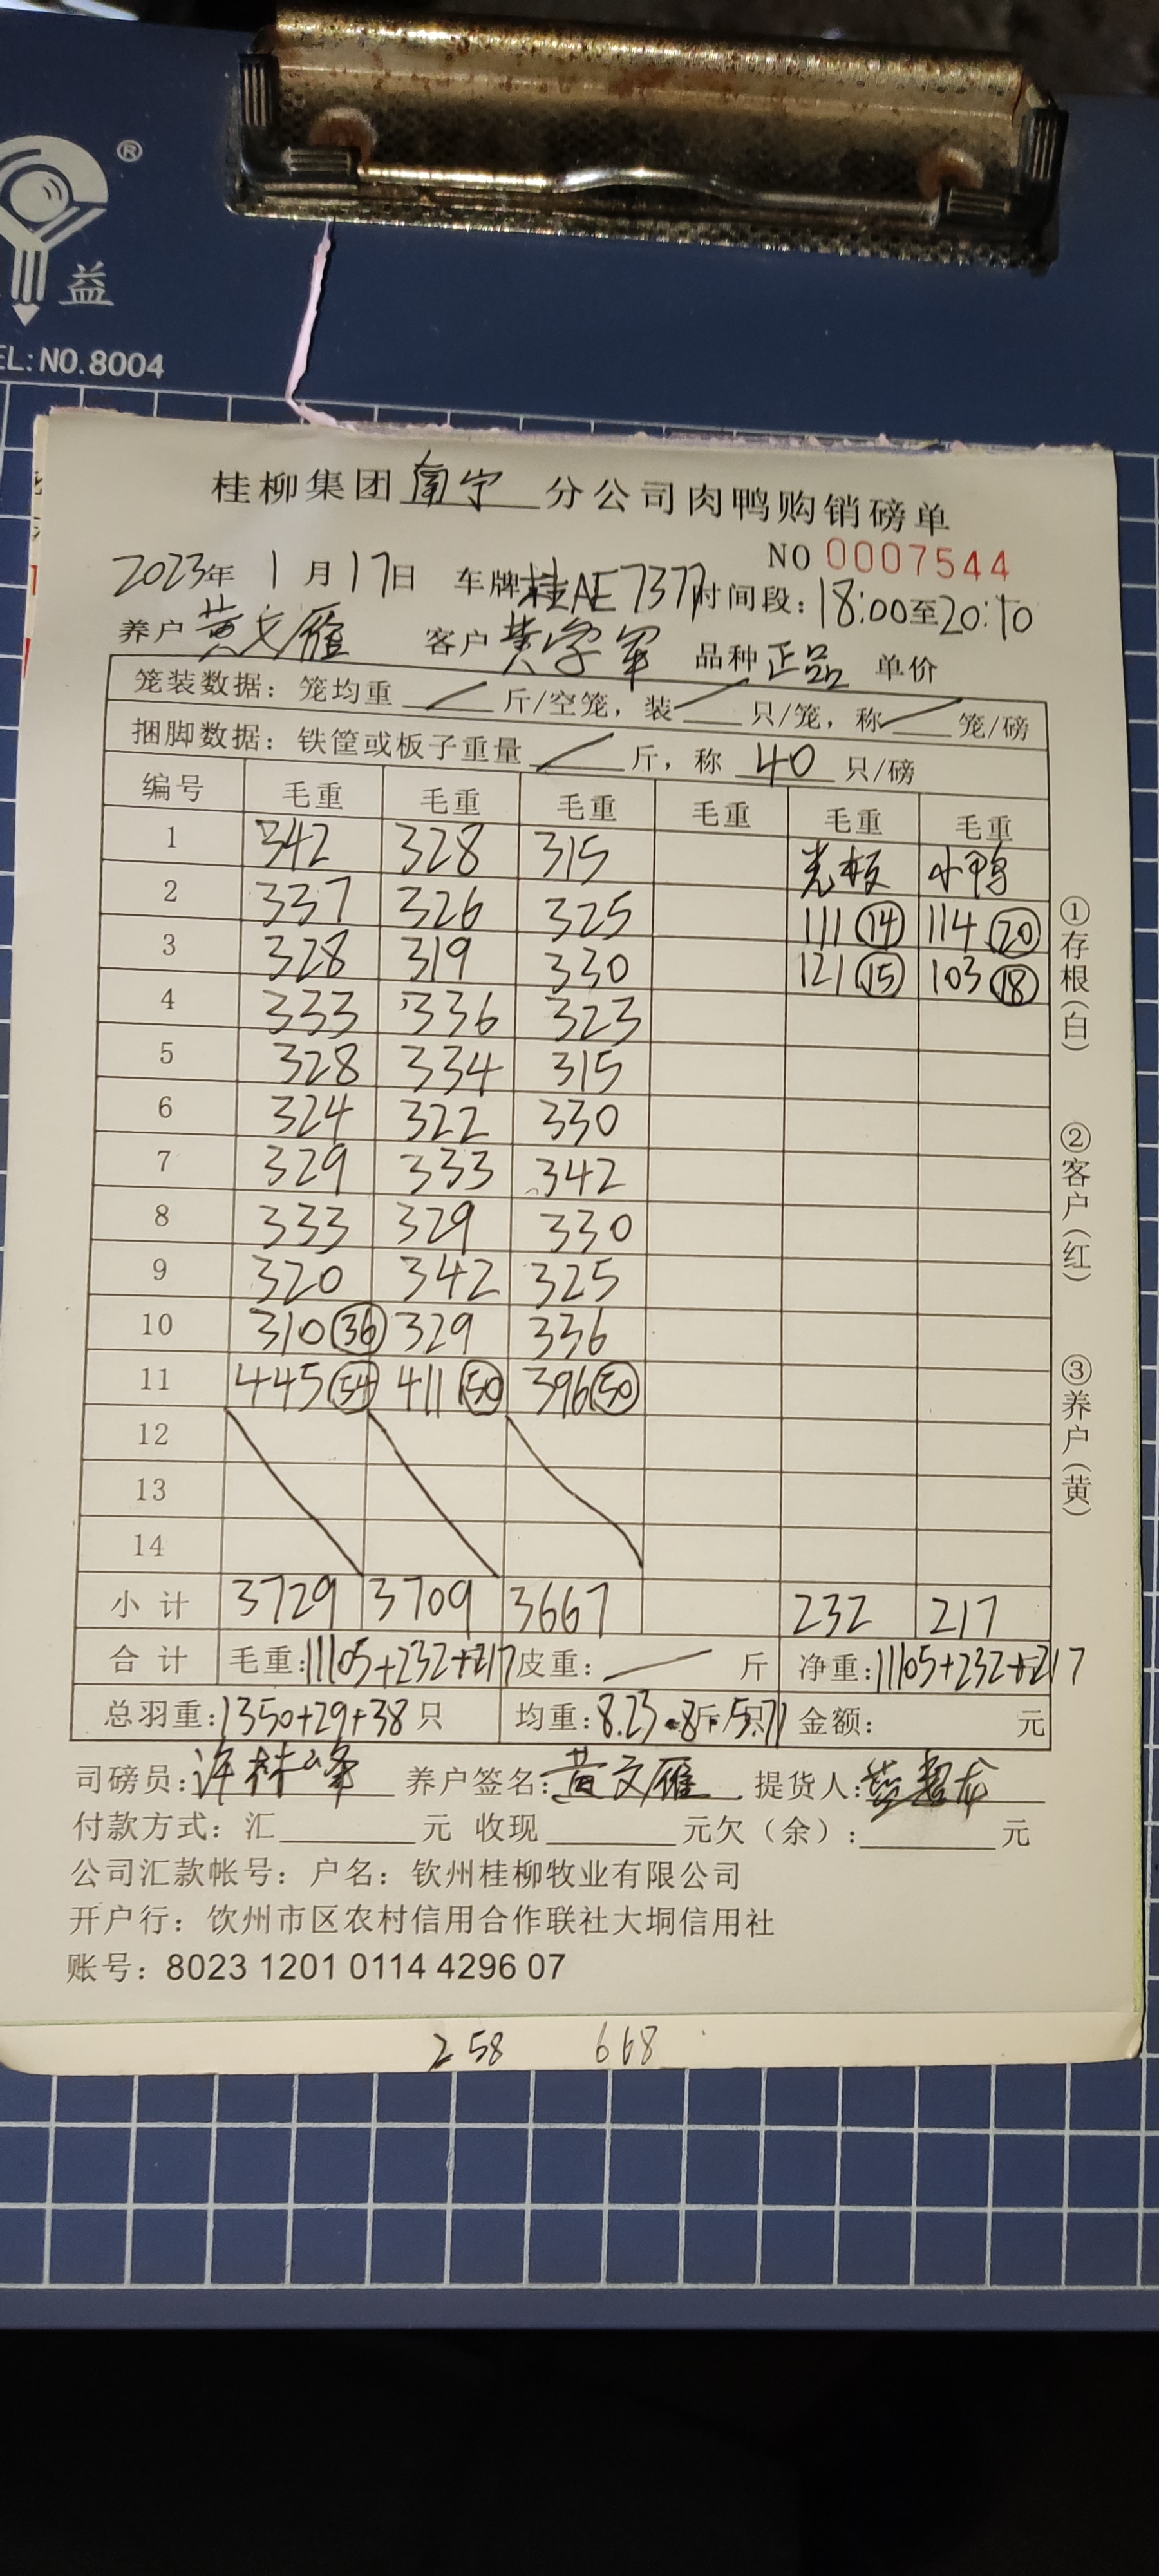 ®
益
EL:NO.8004
桂柳集团 南宁 分公司肉鸭购销磅单
NO 0007544
2023年 1 月 17日 车牌 桂AE7377 时间段: 18:00至20:10
养户 黄文雁 客户 黄学军 品种 正品 单价
笼装数据: 笼均重 / 斤/空笼, 装 / 只/笼, 称 / 笼/磅
捆脚数据: 铁筐或板子重量 / 斤, 称 40 只/磅
编号 毛重 毛重 毛重 毛重 毛重 毛重
1 342 328 315 光板 小鸭
2 337 326 325 111 14 114 20
3 328 319 330 121 15 103 18
4 333 336 323
5 328 334 315
6 324 322 330
7 329 333 342
8 333 329 330
9 320 342 325
10 310 36 329 336
11 445 54 411 50 396 50
12
13
14
小计 3729 3709 3667 232 217
合计 毛重:11105+232+217 皮重: / 斤 净重:11105+232+217
总羽重:1350+29+38 只 均重:8.23 8斤/只 5.71 金额: 元
司磅员: 许林峰 养户签名: 黄文雁 提货人:
付款方式: 汇 元 收现 元欠(余): 元
公司汇款帐号: 户名: 钦州桂柳牧业有限公司
开户行: 饮州市区农村信用合作联社大垌信用社
账号: 8023 1201 0114 4296 07
①存根(白)
②客户(红)
③养户(黄)
258 668